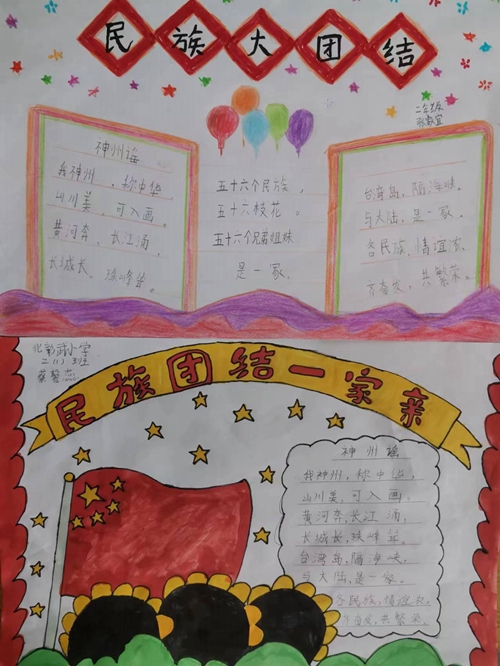 民族大团结
二年级
神州谣
我神州,称中华,
山川美,可入画。
黄河奔,长江涌,
长城长,珠峰耸。
五十六个民族,
五十六枝花。
五十六个兄弟姐妹
是一家,
台湾岛,隔海峡,
与大陆,是一家,
各民族,情谊浓,
齐奋发,共繁荣。
小学
二(1)班
民族团结一家亲
神州谣
我神州,称中华,
山川美,可入画,
黄河奔,长江涌,
长城长,珠峰耸,
台湾岛,隔海峡,
与大陆,是一家。
各民族,情谊浓,
齐奋发,共繁荣。